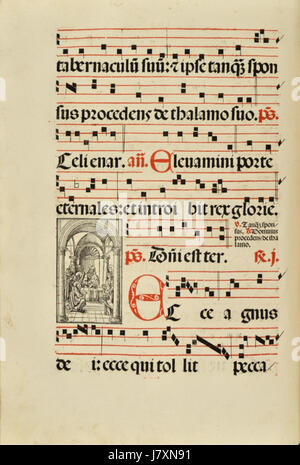 tabernaculũ suũ: ⁊ ipse tanq̃ȝ spon
sus procedens de thalamo suo. p̃s.
Celi enar. añ. Eleuamini porte
eternales: et introi bit rex glorie.
℣. Tanq̃ȝ spon
sus. ℟. Dominus
procedens de tha
lamo.
p̃s. Dñi est ter. ℟. j.
Ec ce a gnus
de i: ecce qui tol lit pecca
alamy
J7XN91